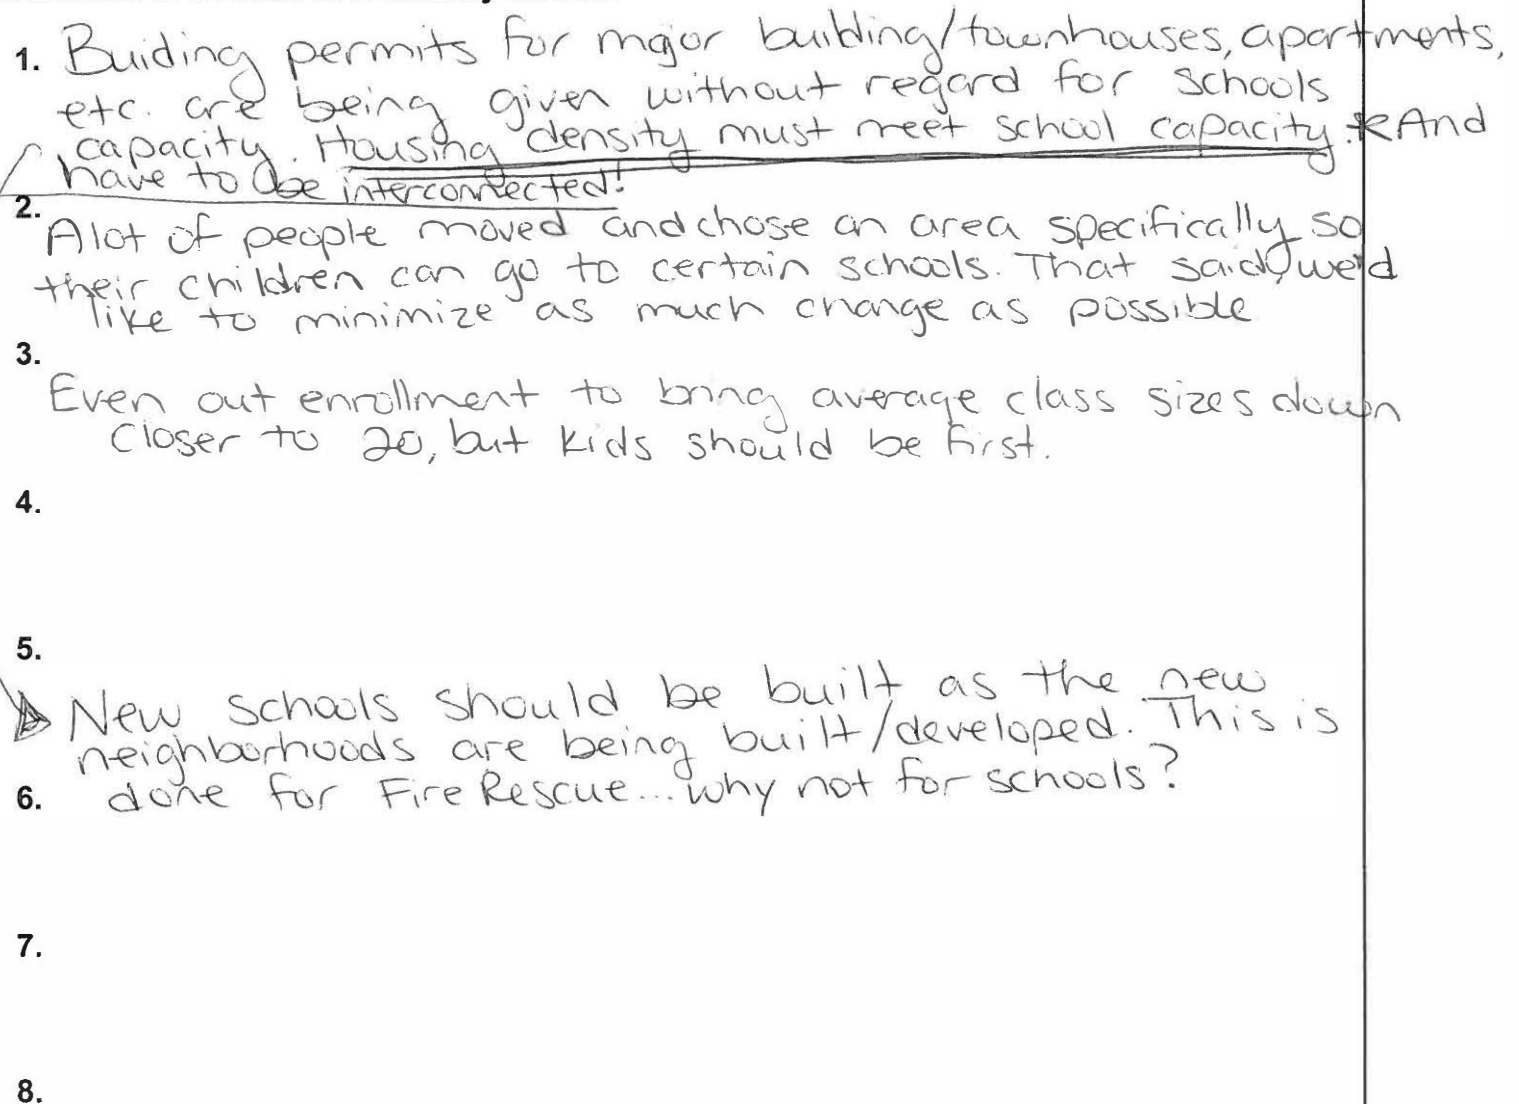 1. Buiding permits for major building/townhouses, apartments,
etc. are being given without regard for schools
capacity. Housing density must meet school capacity. * And
have to be interconnected!
2.
Alot of people moved and chose an area specifically so
their children can go to certain schools. That said, we'd
like to minimize as much change as possible
3.
Even out enrollment to bring average class sizes down
closer to 20, but kids should be first.
4.
5.
New schools should be built as the new
neighborhoods are being built/developed. This is
6. done for Fire Rescue... why not for schools?
7.
8.